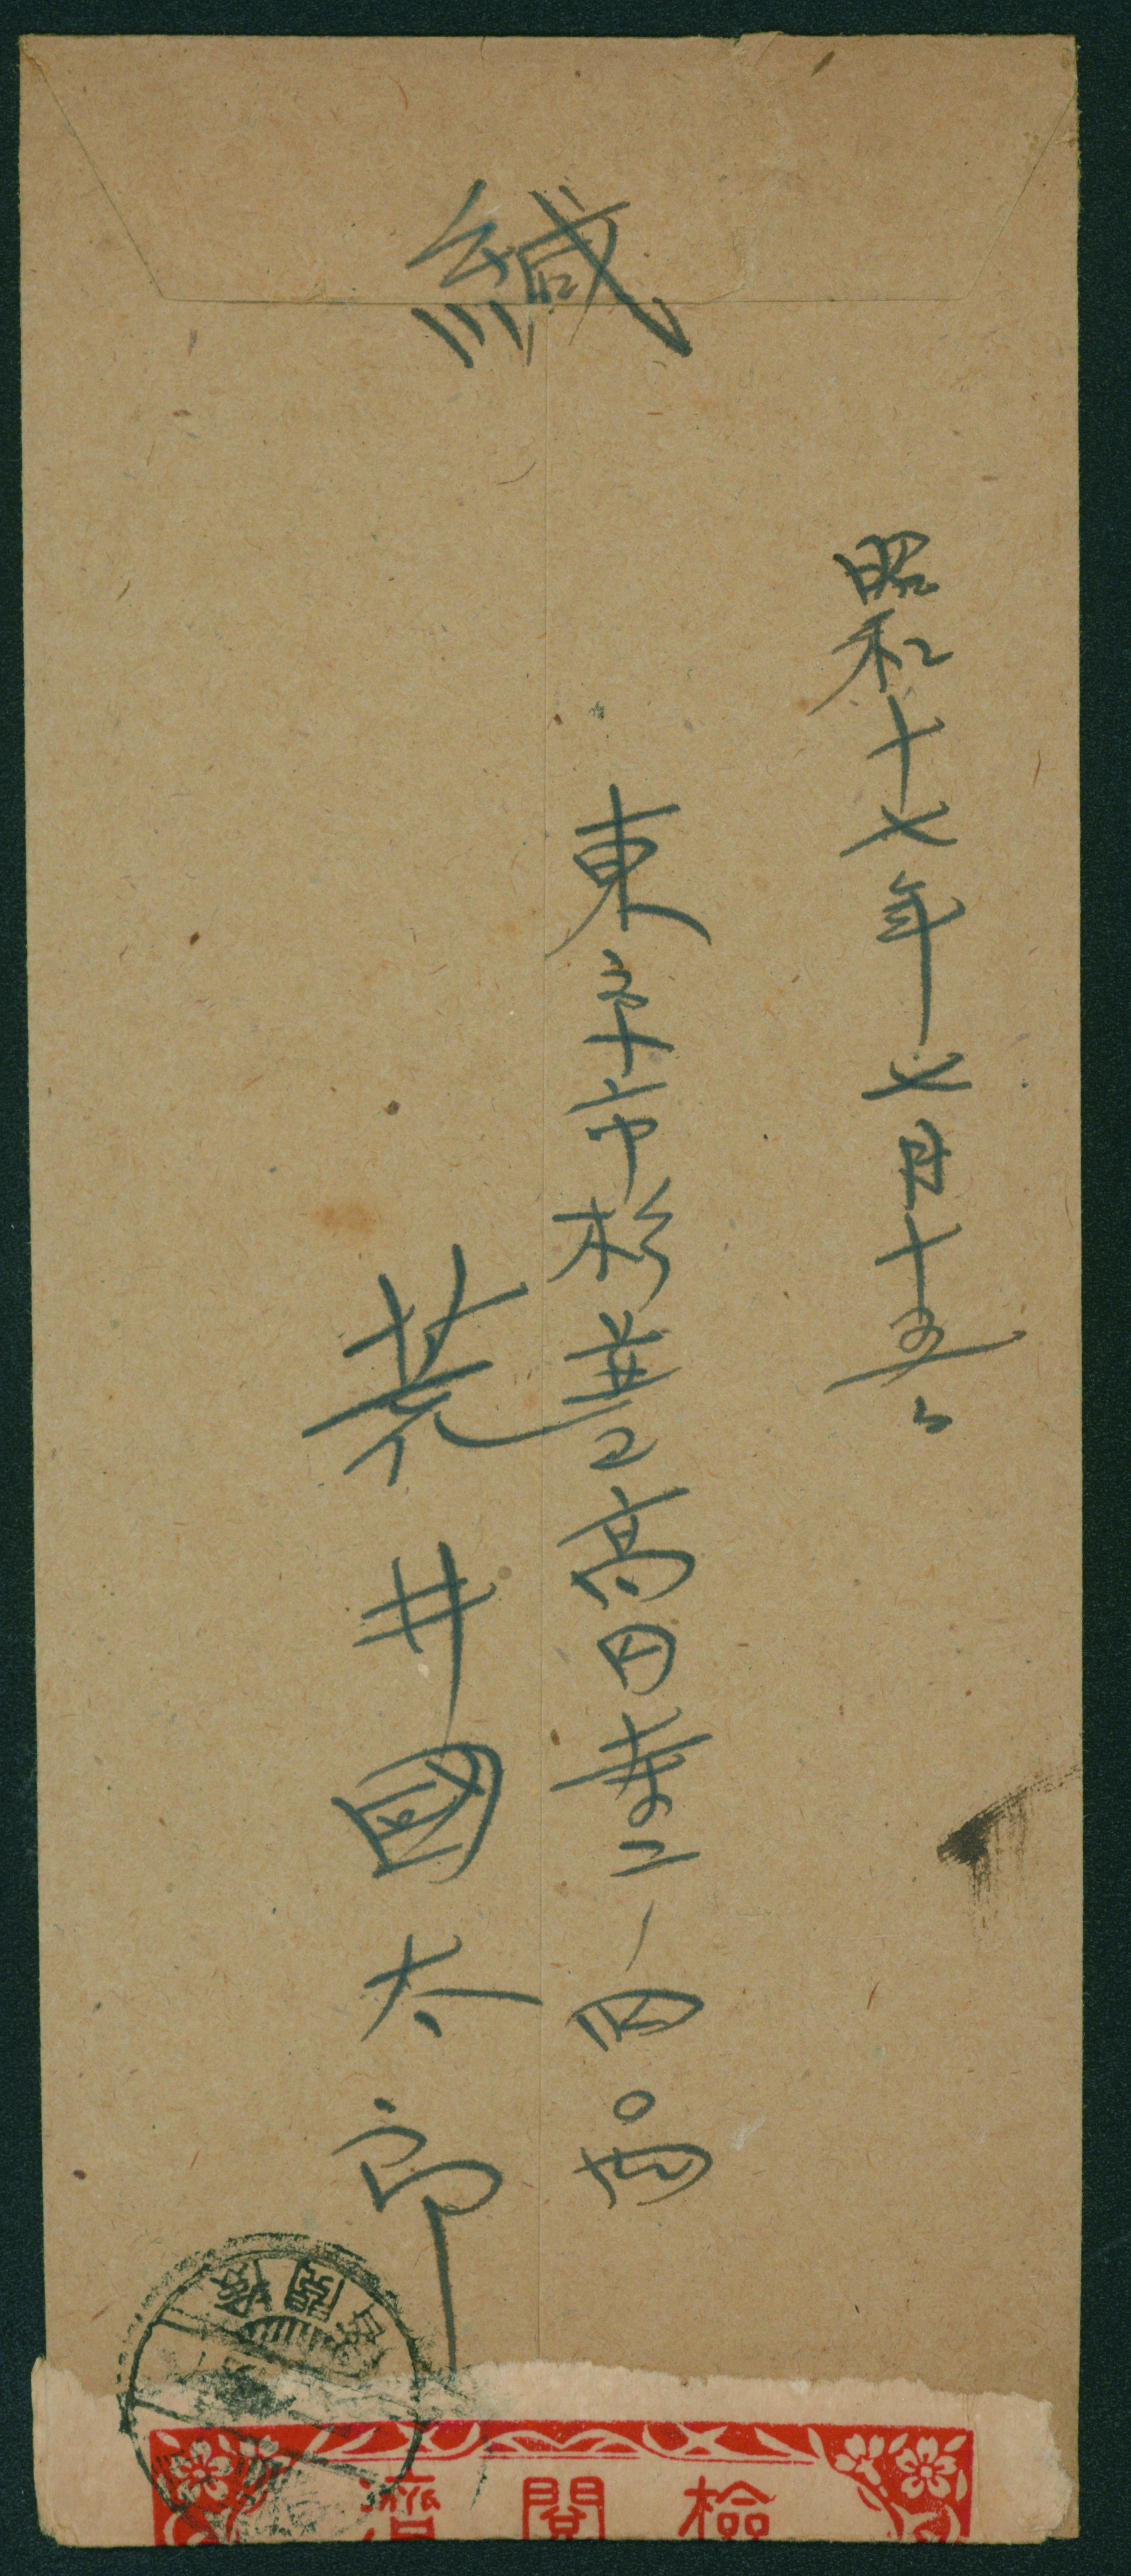 緘
昭和十七年七月十五日
東京市杉並区高円寺二ノ四四
荒井國太郎
檢閲濟